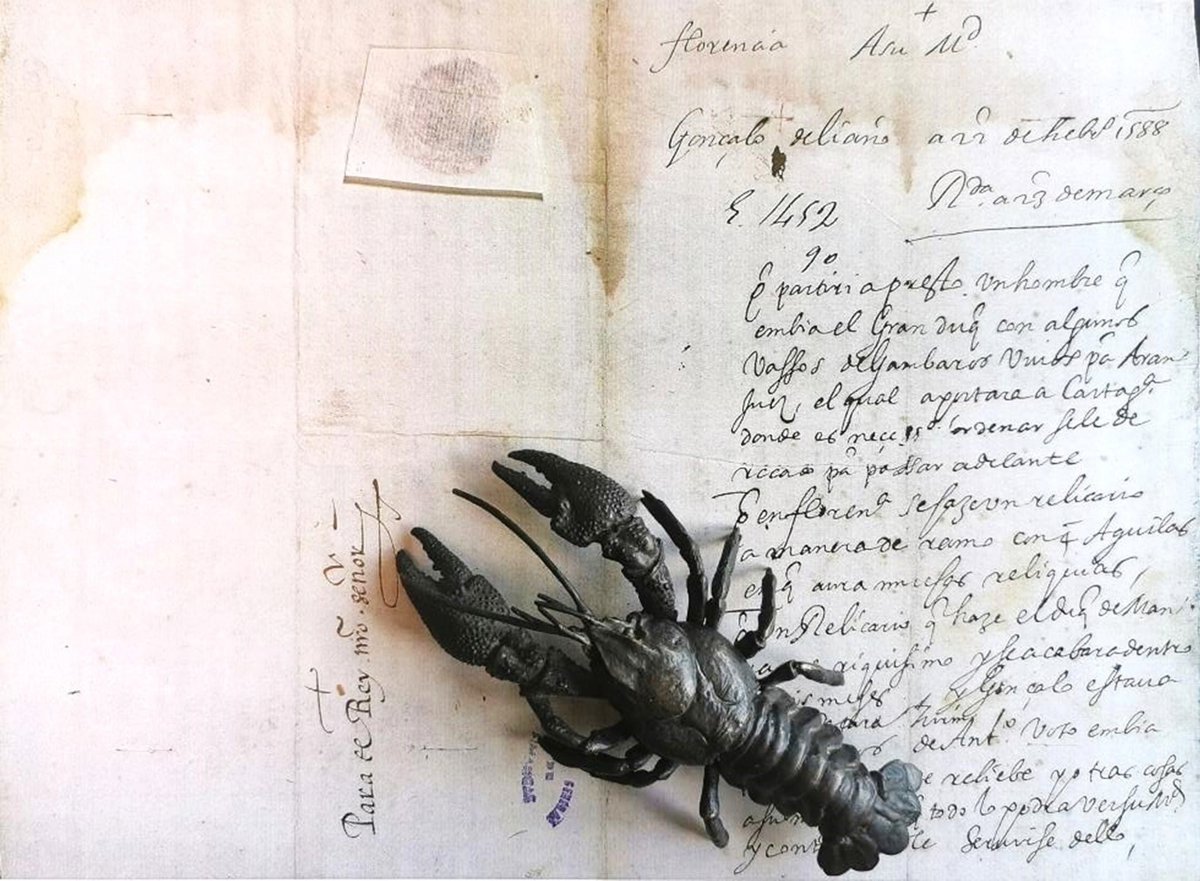 florencia A Su Md
Gonçalo de liaño a 22 de heb.º 1588
Rda a 23 de março
E. 1452
90
q̃ partiri a presto un hombre q̃
embia el Gran duq̃ con algunos
Vassos de Gambaros Vivos pª Aran
juez, el qual aportara a Cartagª
donde es necess.º ordenar se le de
reca pª passar adelante
q̃ en florenª se haze un relicario
a manera de ramo con 4 Aguilas
en q̃ aura muchas reliquias,
un Relicario q̃ haze el duq̃ de Man
riquisimo y se acabara dentro
is meses y Gonçalo estava
de Ant.º Voto embia
e reliebe y otras cosas
todo lo podra ver su Md
y cont se servise dello,
Para el Rey nro señor